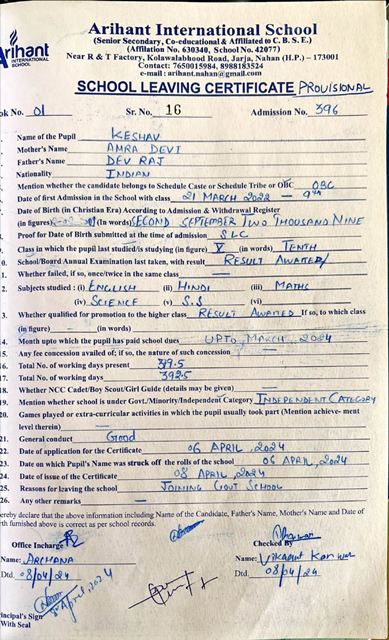 Arihant
INTERNATIONAL
SCHOOL
Arihant International School
(Senior Secondary, Co-educational & Affiliated to C. B. S. E.)
(Affiliation No. 630340, School No. 42077)
Near R & T Factory, Kolawalabhood Road, Jarja, Nahan (H.P.) – 173001
Contact: 7650015984, 8988183524
e-mail : arihant.nahan@gmail.com
SCHOOL LEAVING CERTIFICATE PROVISIONAL
ok No. 01 Sr. No. 16 Admission No. 396
Name of the Pupil KESHAV
Mother's Name AMRA DEVI
Father's Name DEV RAJ
Nationality INDIAN
Mention whether the candidate belongs to Schedule Caste or Schedule Tribe or OBC OBC
Date of first Admission in the School with class 21 MARCH 2022 – 9th
Date of Birth (in Christian Era) According to Admission & Withdrawal Register
(in figures) (In words) SECOND SEPTEMBER TWO THOUSAND NINE
Proof for Date of Birth submitted at the time of admission SLC
Class in which the pupil last studied/is studying (in figure) X (in words) TENTH
0. School/Board Annual Examination last taken, with result RESULT AWAITED
1. Whether failed, if so, once/twice in the same class —
2. Subjects studied : (i) ENGLISH (ii) HINDI (iii) MATHS
(iv) SCIENCE (v) S.S (vi) —
3. Whether qualified for promotion to the higher class RESULT AWAITED If so, to which class
(in figure) - (in words)
14. Month upto which the pupil has paid school dues UPTO MARCH 2024
15. Any fee concession availed of; if so, the nature of such concession —
16. Total No. of working days present 319.5
17. Total No. of working days 392.5
18. Whether NCC Cadet/Boy Scout/Girl Guide (details may be given) —
19. Mention whether school is under Govt./Minority/Independent Category INDEPENDENT CATEGORY
20. Games played or extra-curricular activities in which the pupil usually took part (Mention achieve- ment
level therein) —
21. General conduct Good
22. Date of application for the Certificate 06 APRIL, 2024
23. Date on which Pupil's Name was struck off the rolls of the school 06 APRIL, 2024
24. Date of issue of the Certificate 08 APRIL, 2024
25. Reasons for leaving the school JOINING GOVT SCHOOL
26. Any other remarks —
ereby declare that the above information including Name of the Candidate, Father's Name, Mother's Name and Date of
rth furnished above is correct as per school records.
Office Incharge
Checked By
Name: ARCHANA
Name: Vikrant Kanwar
Dtd. 08/04/24
Dtd. 08/04/24
8th April, 2024
incipal's Sign
With Seal